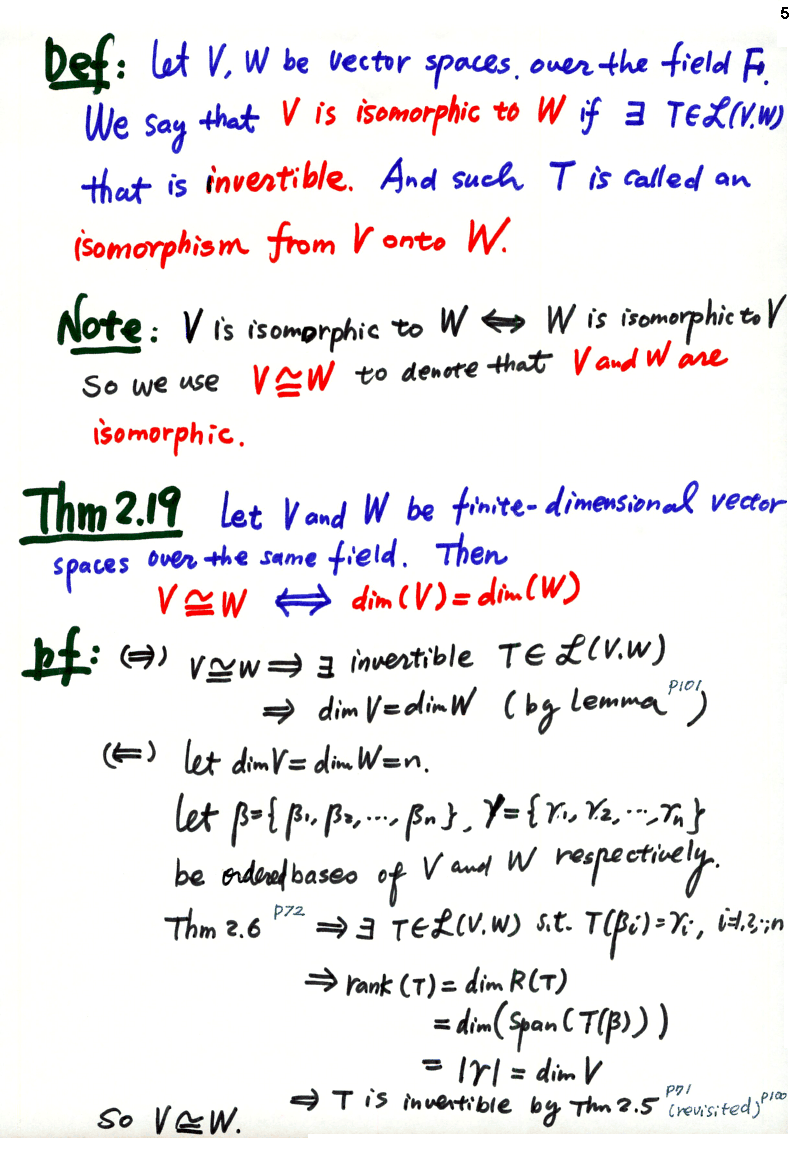 5
Def: Let V, W be vector spaces. over the field F.
We say that V is isomorphic to W if ∃ T∈ℒ(V.W)
that is invertible. And such T is called an
isomorphism from V onto W.
Note: V is isomorphic to W ⟺ W is isomorphic to V
So we use V≅W to denote that V and W are
isomorphic.
Thm 2.19 Let V and W be finite-dimensional vector
spaces over the same field. Then
V≅W ⟺ dim(V)=dim(W)
pf: (⇒) V≅W ⟹ ∃ invertible T∈ℒ(V.W)
⟹ dim V=dim W (by lemma P101)
(⇐) Let dimV=dimW=n.
Let β={β₁,β₂,...,βn}, γ={γ₁,γ₂,...,γn}
be ordered bases of V and W respectively.
Thm 2.6 P72 ⟹ ∃ T∈ℒ(V.W) s.t. T(βi)=γi, i=1,2,..,n
⟹ rank(T)=dim R(T)
=dim(Span(T(β)))
= |γ| = dim V
⟹ T is invertible by Thm 2.5 P71 (revisited) P100
So V≅W.